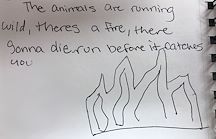 The animals are running
wild, theres a fire, there
gonna die run before it catches
you